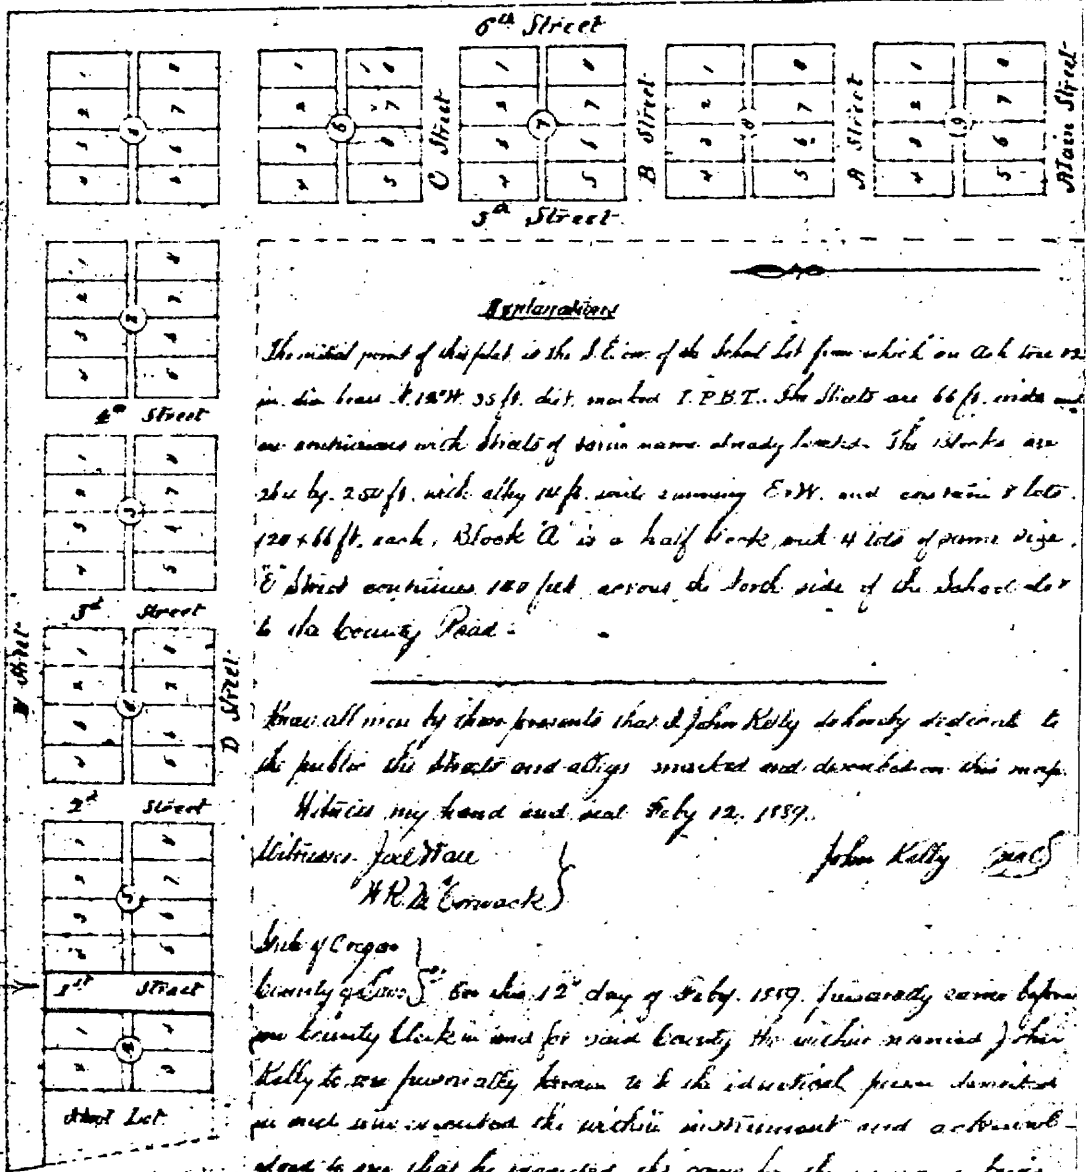 6th Street
C Street
B Street
A Street
Main Street
5th Street
Explanations
The initial point of this plat is the S.E. cor. of the School Lot from which an Ash tree 12
in. dia. bears N. 12° W. 35 ft. dist. marked I.P.B.T. The Streets are 66 ft. wide and
are continuous with Streets of same name already located. The Blocks are
264 by 254 ft. with alley 14 ft. wide running E & W. and contain 8 lots
120 x 66 ft. each. Block "A" is a half block, with 4 lots of same size.
"E" Street continues 180 feet across the North side of the School Lot
to the County Road.
4th Street
3d Street
D Street
2d Street
1st Street
School Lot
Know all men by these presents that I John Kelly do hereby dedicate to
the public the Streets and alleys marked and described on this map.
Witness my hand and seal Feby 12, 1889.
Witnesses Joel Ware
John Kelly
State of Oregon
County of Lane On this 12th day of Feby. 1889. personally came before
me County Clerk in and for said County the within named John
Kelly to me personally known to be the identical person described
in and who executed the within instrument and acknowl-
edged to me that he executed the same